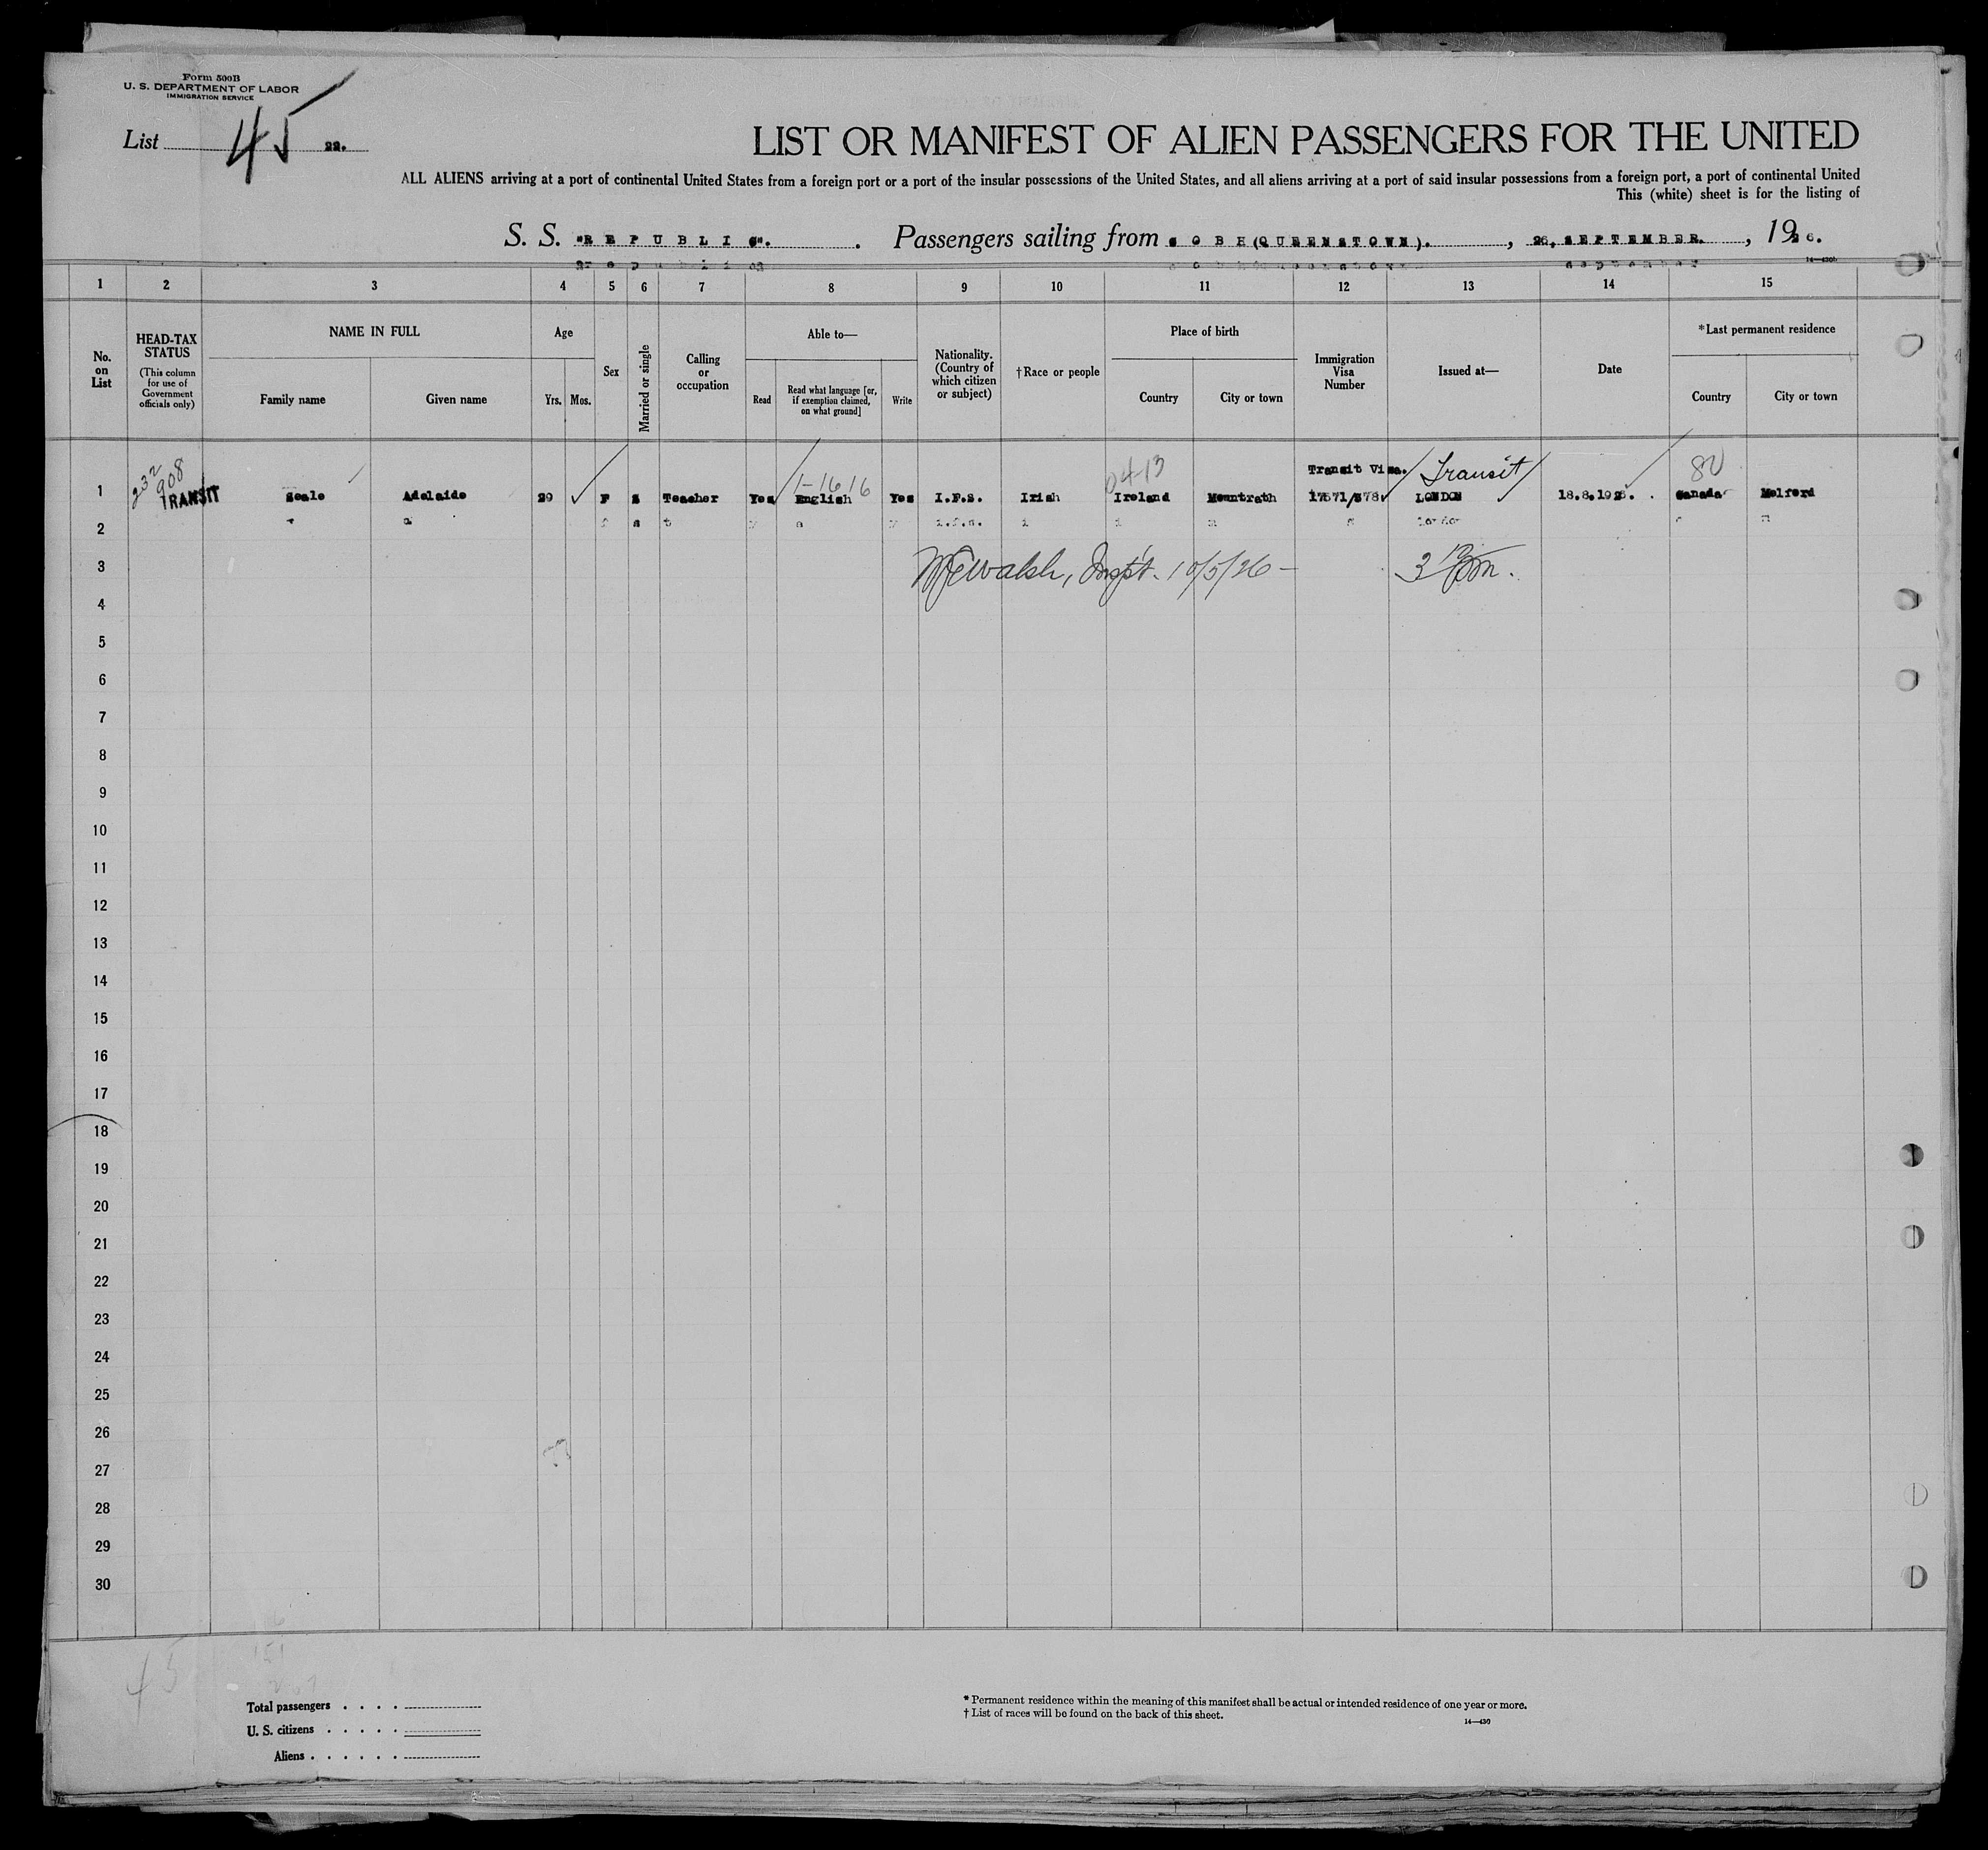 Form 500B
U. S. DEPARTMENT OF LABOR
IMMIGRATION SERVICE
List 45 22.
LIST OR MANIFEST OF ALIEN PASSENGERS FOR THE UNITED
ALL ALIENS arriving at a port of continental United States from a foreign port or a port of the insular possessions of the United States, and all aliens arriving at a port of said insular possessions from a foreign port, a port of continental United
This (white) sheet is for the listing of
S. S. "REPUBLIC". Passengers sailing from COBH(QUEENSTOWN)., 26, SEPTEMBER., 1926.
1 2 3 4 5 6 7 8 9 10 11 12 13 14 15
No. on List
HEAD-TAX STATUS
(This column for use of Government officials only)
NAME IN FULL
Family name
Given name
Age
Yrs.
Mos.
Sex
Married or single
Calling or occupation
Able to—
Read
Read what language [or, if exemption claimed, on what ground]
Write
Nationality. (Country of which citizen or subject)
†Race or people
Place of birth
Country
City or town
Immigration Visa Number
Issued at—
Date
*Last permanent residence
Country
City or town
232 908 1-1616 04-13 Transit Visa. Transit 80
1 TRANSIT Seale Adelaide 29 F S Teacher Yes English Yes I.F.S. Irish Ireland Mountrath 17571/578 LONDON 18.8.1926. Canada Melford
2
3 Walsh, Inspt. 10/5/26 -
4
5
6
7
8
9
10
11
12
13
14
15
16
17
18
19
20
21
22
23
24
25
26
27
28
29
30
45
151
Total passengers . . . .
U. S. citizens . . . . .
Aliens . . . . . .
* Permanent residence within the meaning of this manifest shall be actual or intended residence of one year or more.
† List of races will be found on the back of this sheet.
14—430